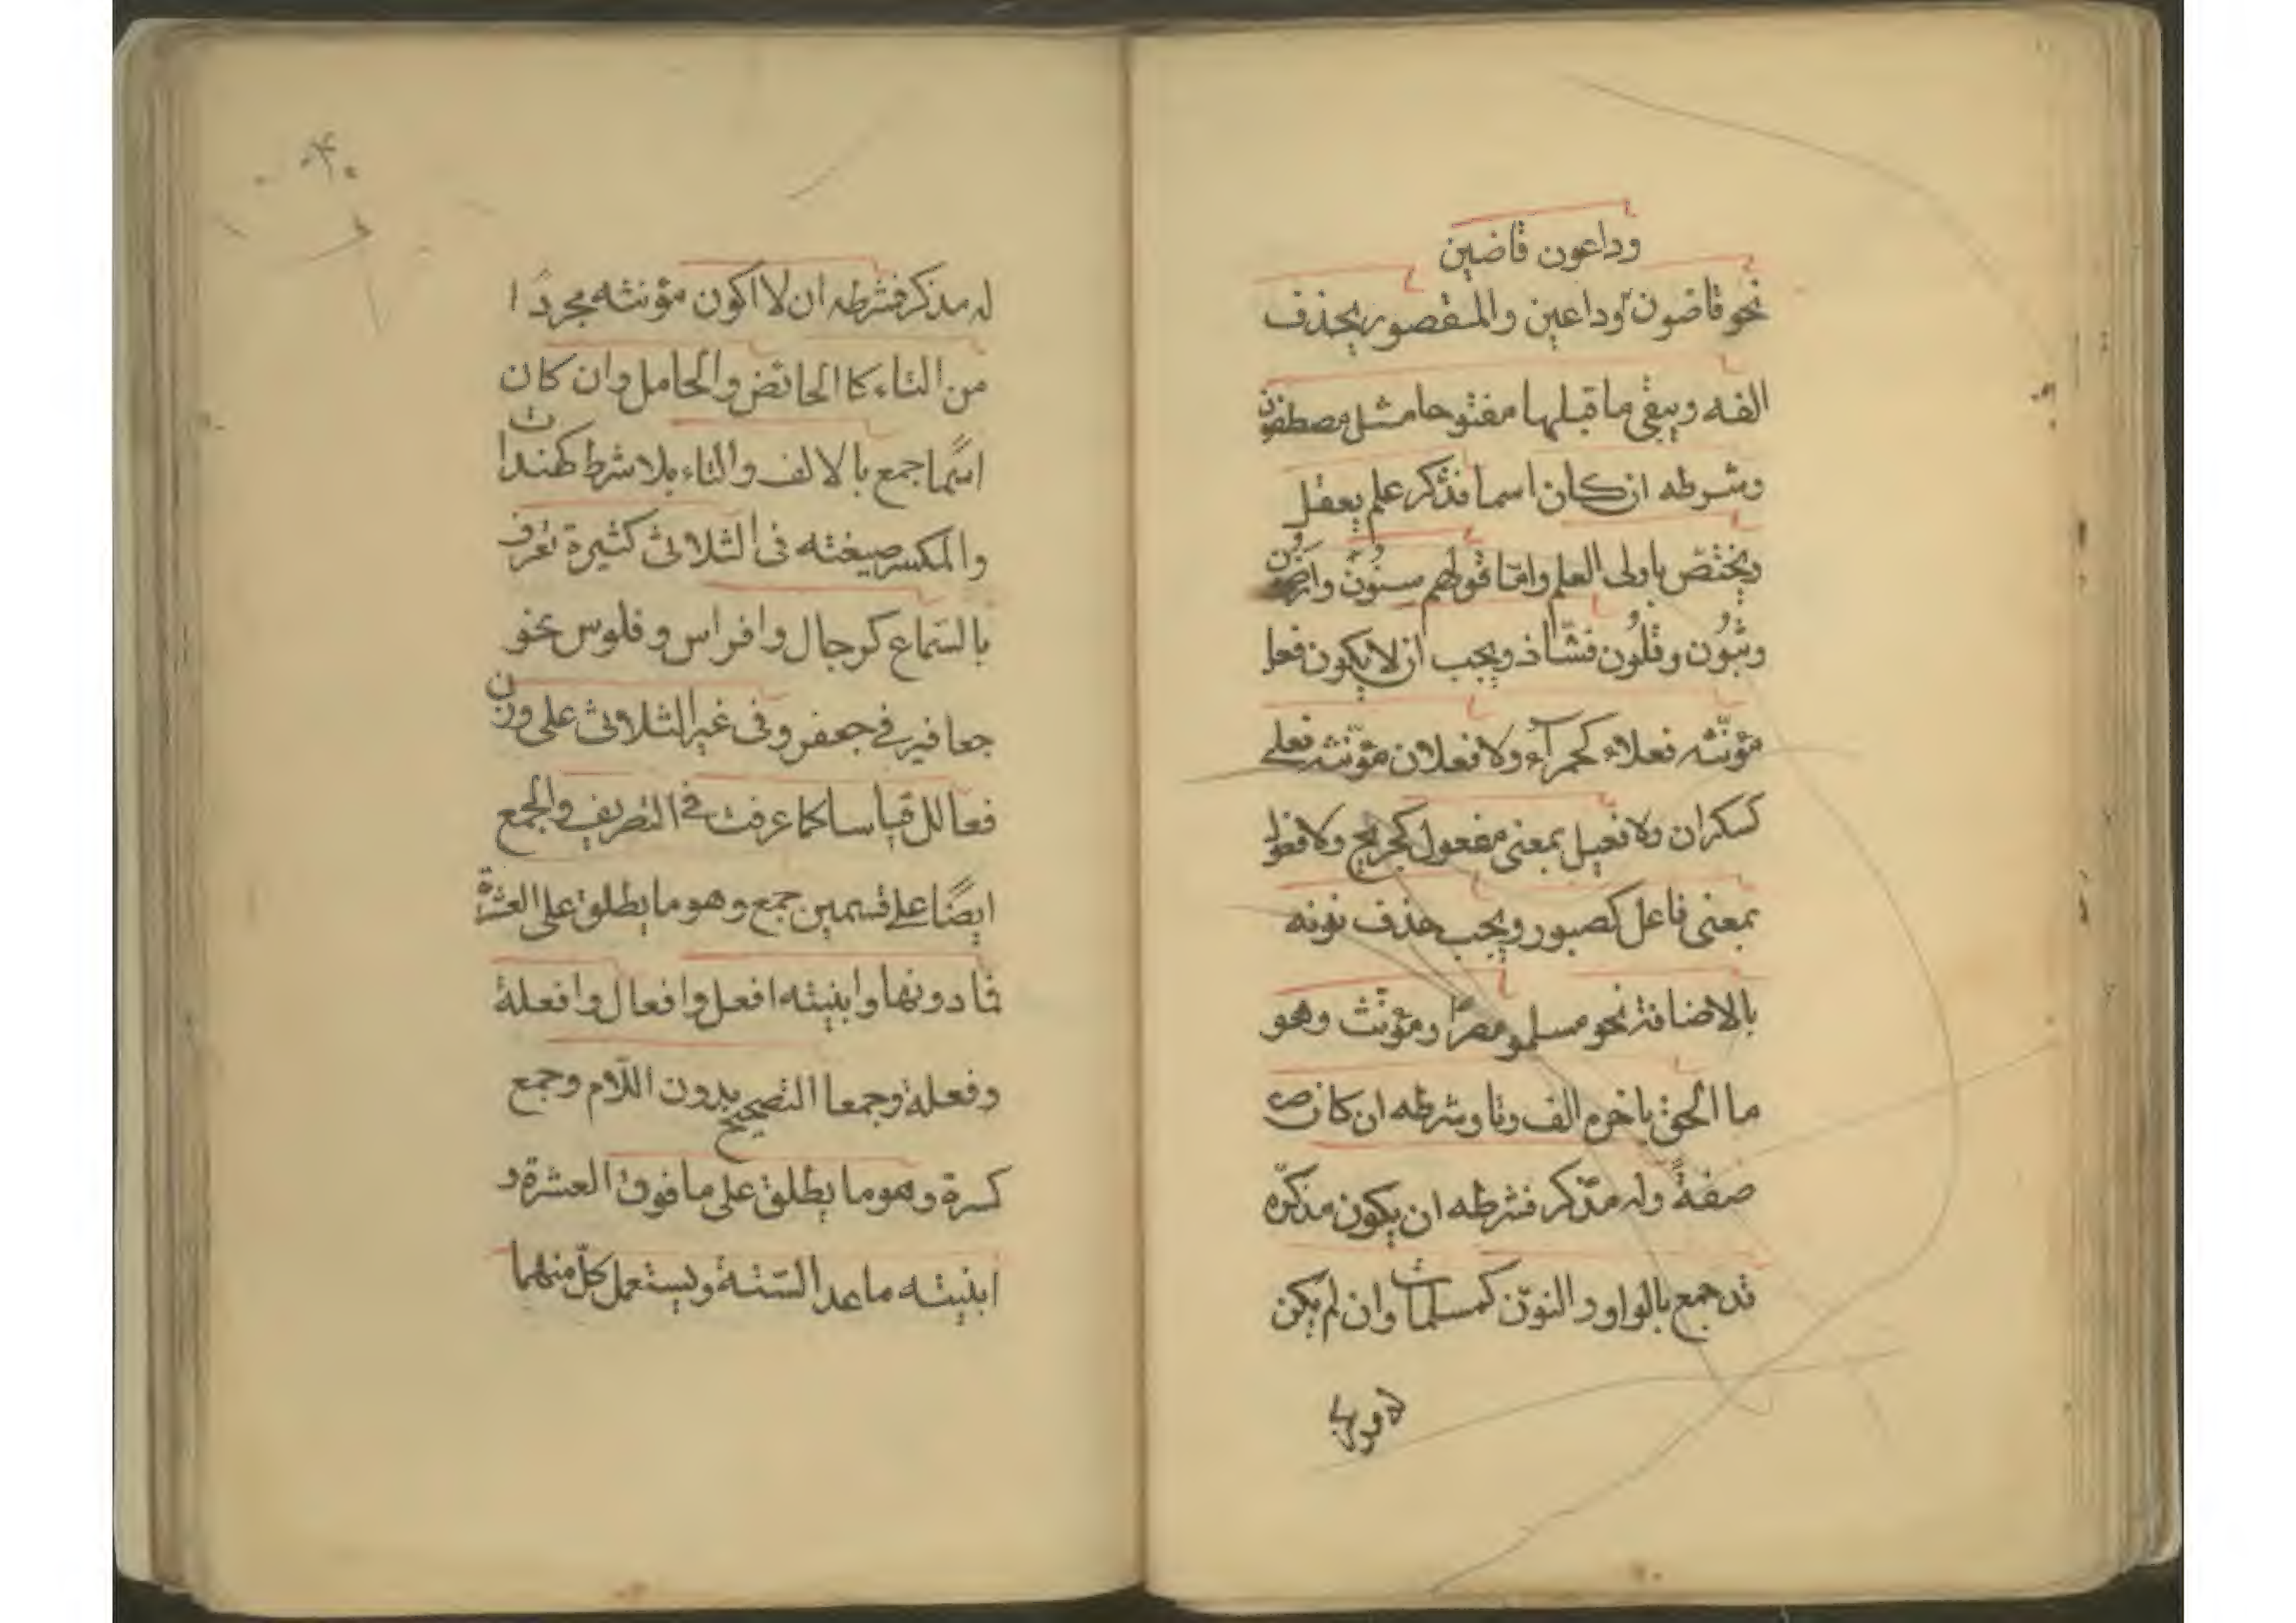 وداعون قاضين
نحو قاضون وداعين والمقصور يحذف
الفه ويبقى ما قبلها مفتوحا مثل مصطفون
وشرطه ان كان اسما فذكر علم يعقل
ويختص باولى العلم وامّا قولهم سنون وارضون
وثبون وقلون فشاذ ويجب ان لا يكون فعل
مؤنّثه فعلاء كحمرآء ولا فعلان مؤنّثه فعلى
كسكران ولا فعيل بمعنى مفعول كجريح ولا فعول
بمعنى فاعل كصبور ويجب حذف نونه
بالاضافة نحو مسلمو مصر ومؤنّث وهو
ما الحق باخره الف وتا وشرطه ان كان
صفةً وله مذّكر فشرطه ان يكون مذكّره
قد جمع بالواو والنون كمسلمات وان لم يكن
له مذكر فشرطه ان لا اكون مؤنثه مجردًا
من التاء كا الحائض والحامل وان كان
اسمًا جمع بالالف والتاء بلا شرط كهندات
والمكسر صيغته فى الثلاثى كثيرة تعرف
بالسّماع كرجال وافراس وفلوس نحو
جعافير في جعفر وفى غير الثلاثى على وزن
فعالل قياسا كما عرفت في التصريف والجمع
ايضًا على قسمين جمع وهو ما يطلق على العشرة
فما دونها وابنيته افعل وافعال وافعلة
وفعلة وجمعا التصحيح بدون اللّام وجمع
كسرة وهو ما يطلق على ما فوق العشرة و
ابنيته ما عدا السّتة ويستعمل كلّ منهما